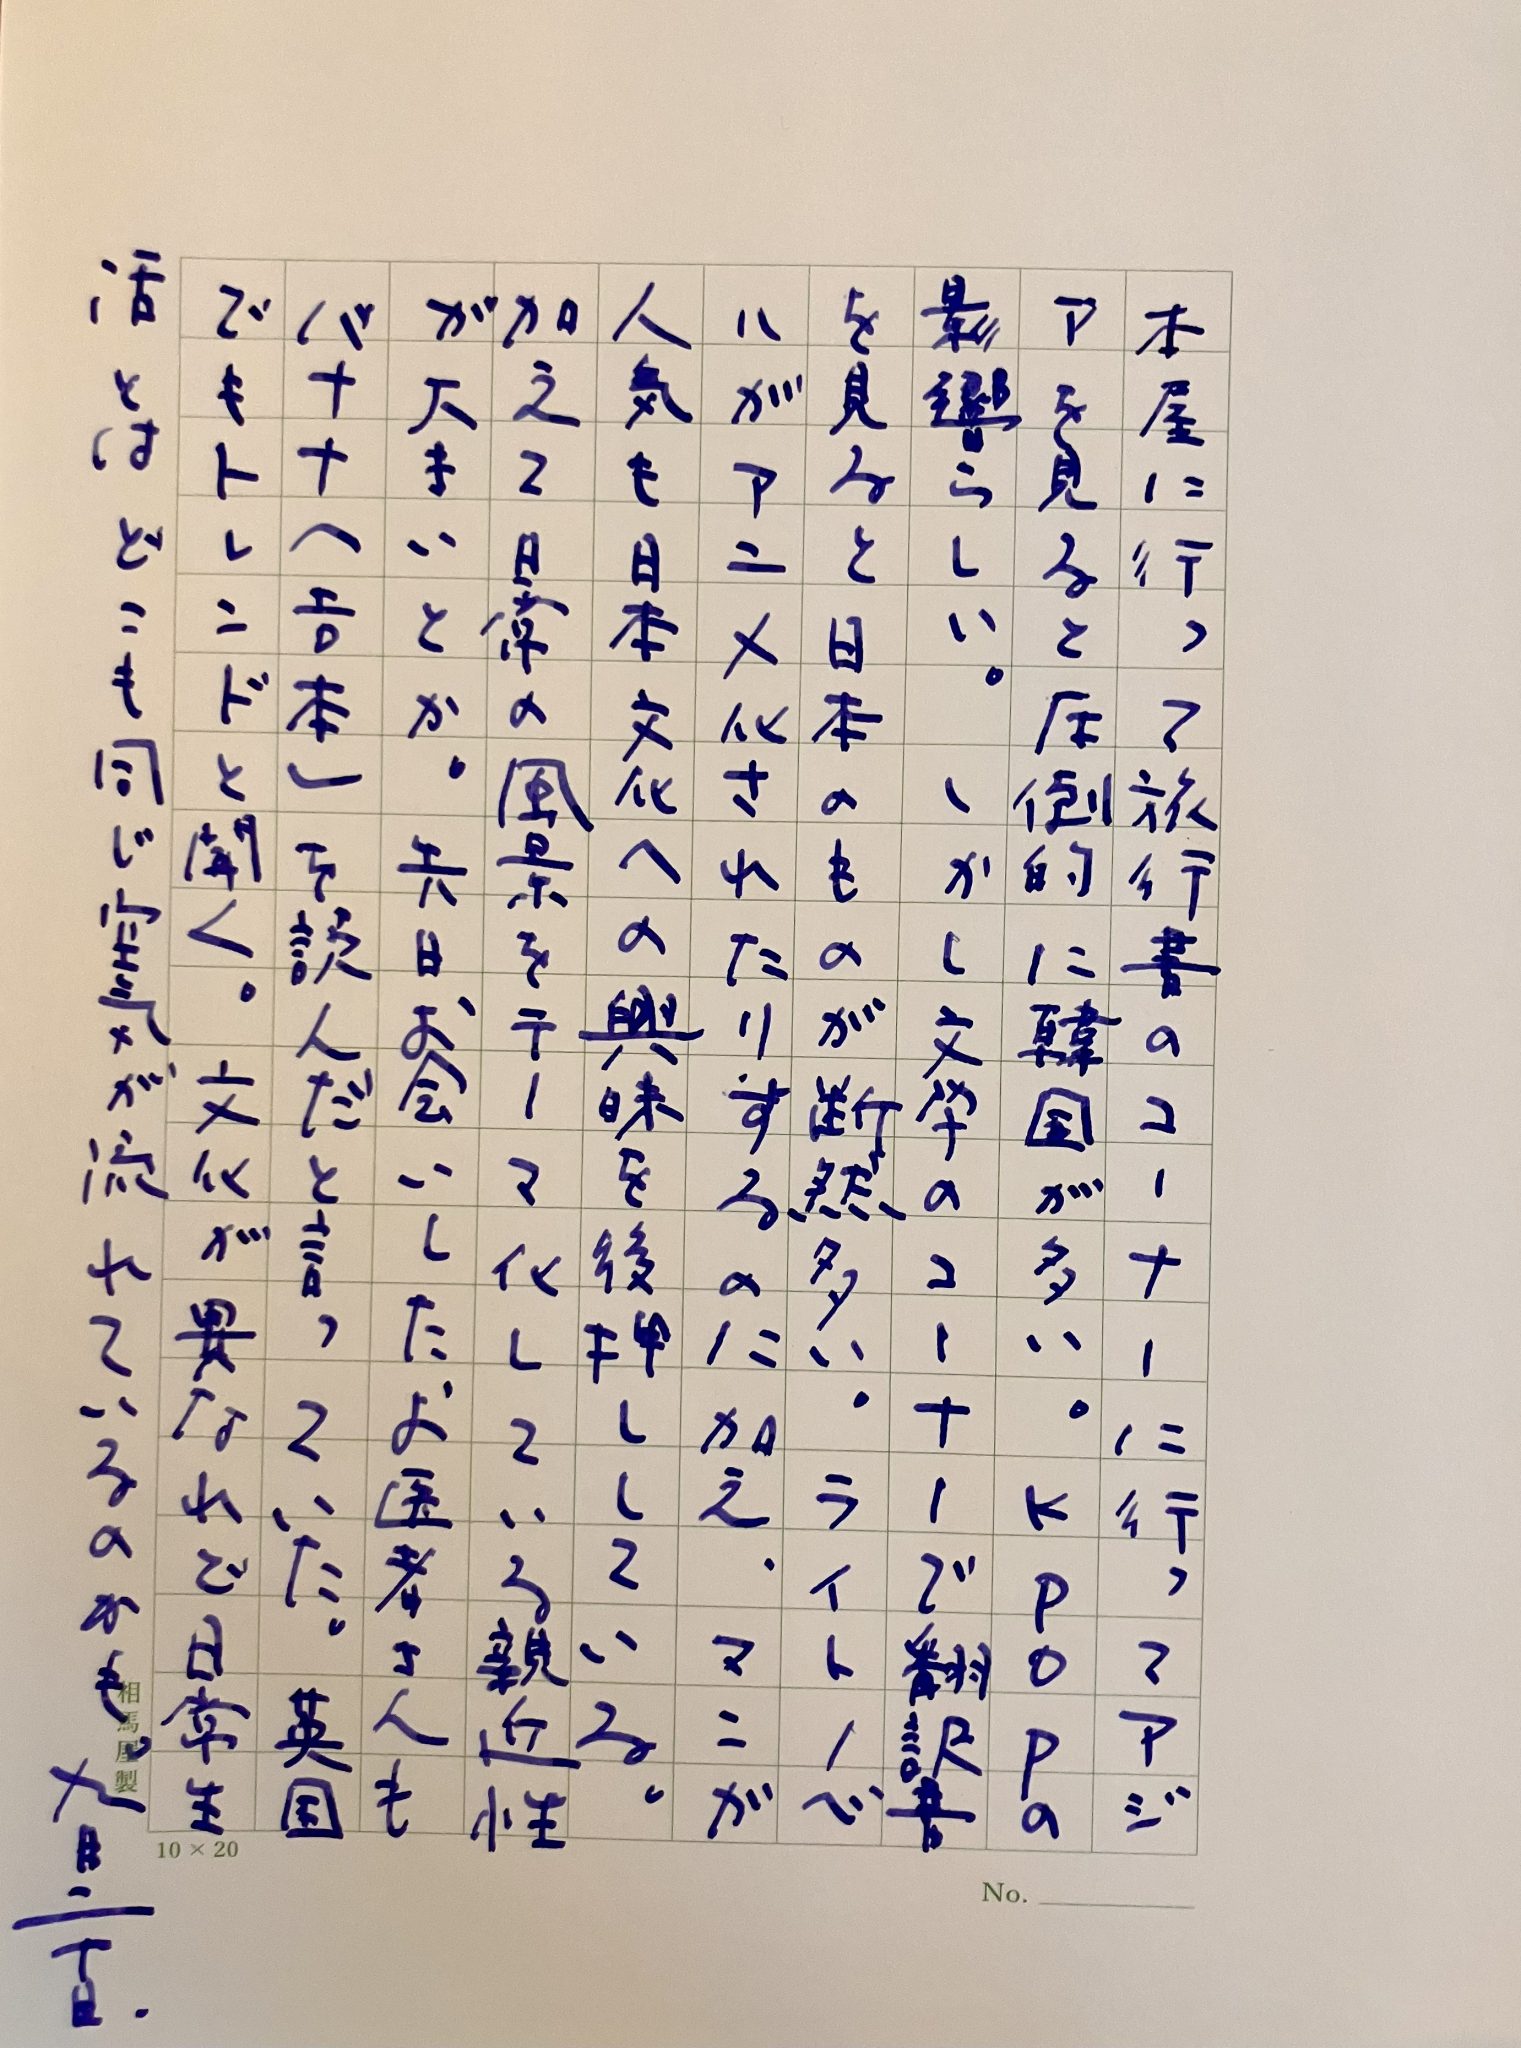 本屋に行って旅行書のコーナーに行ってアジ
アを見ると圧倒的に韓国が多い。KPOPの
影響らしい。しかし文学のコーナーで翻訳書
を見ると日本のものが断然多い。ライトノベ
ルがアニメ化されたりするのに加え、マンガ
人気も日本文化への興味を後押ししている。
加えて日常の風景をテーマ化している親近性
が大きいとか。先日お会いしたお医者さんも
バナナ(吉本)を読んだと言っていた。英国
でもトレンドと聞く。文化が異なれど日常生
活とはどこも同じ空気が流れているのかも。九月三十日.
相馬屋製
10×20
No.